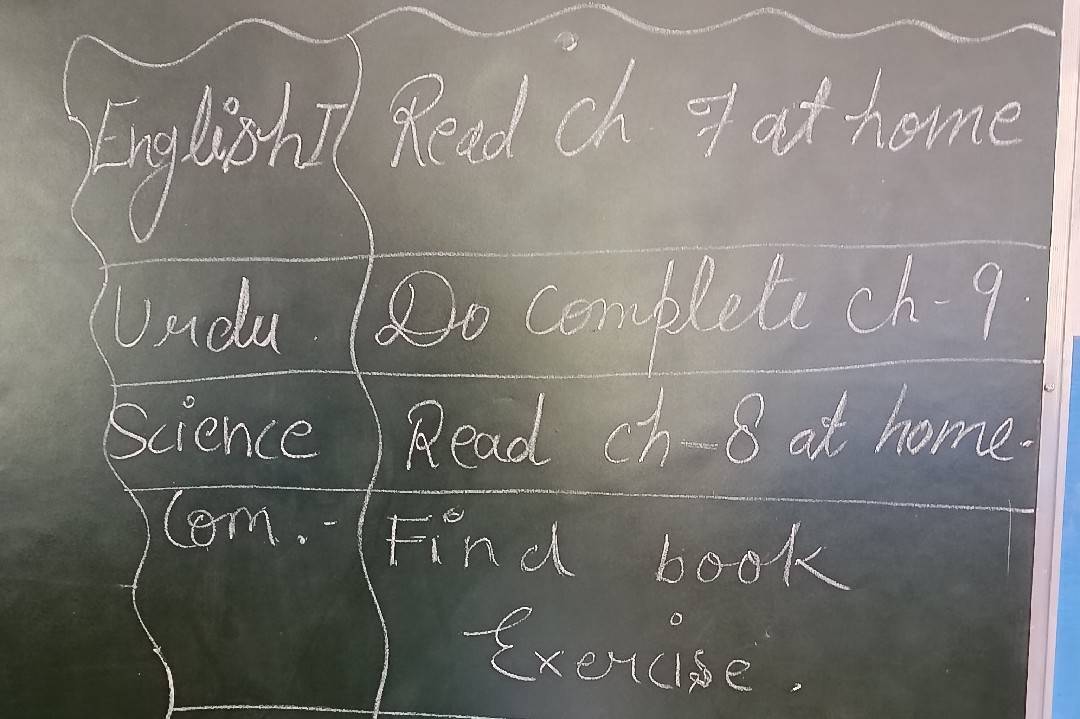 English I Read ch 7 at home
Urdu Do complete ch-9.
Science Read ch-8 at home.
Com.- Find book
Exercise.